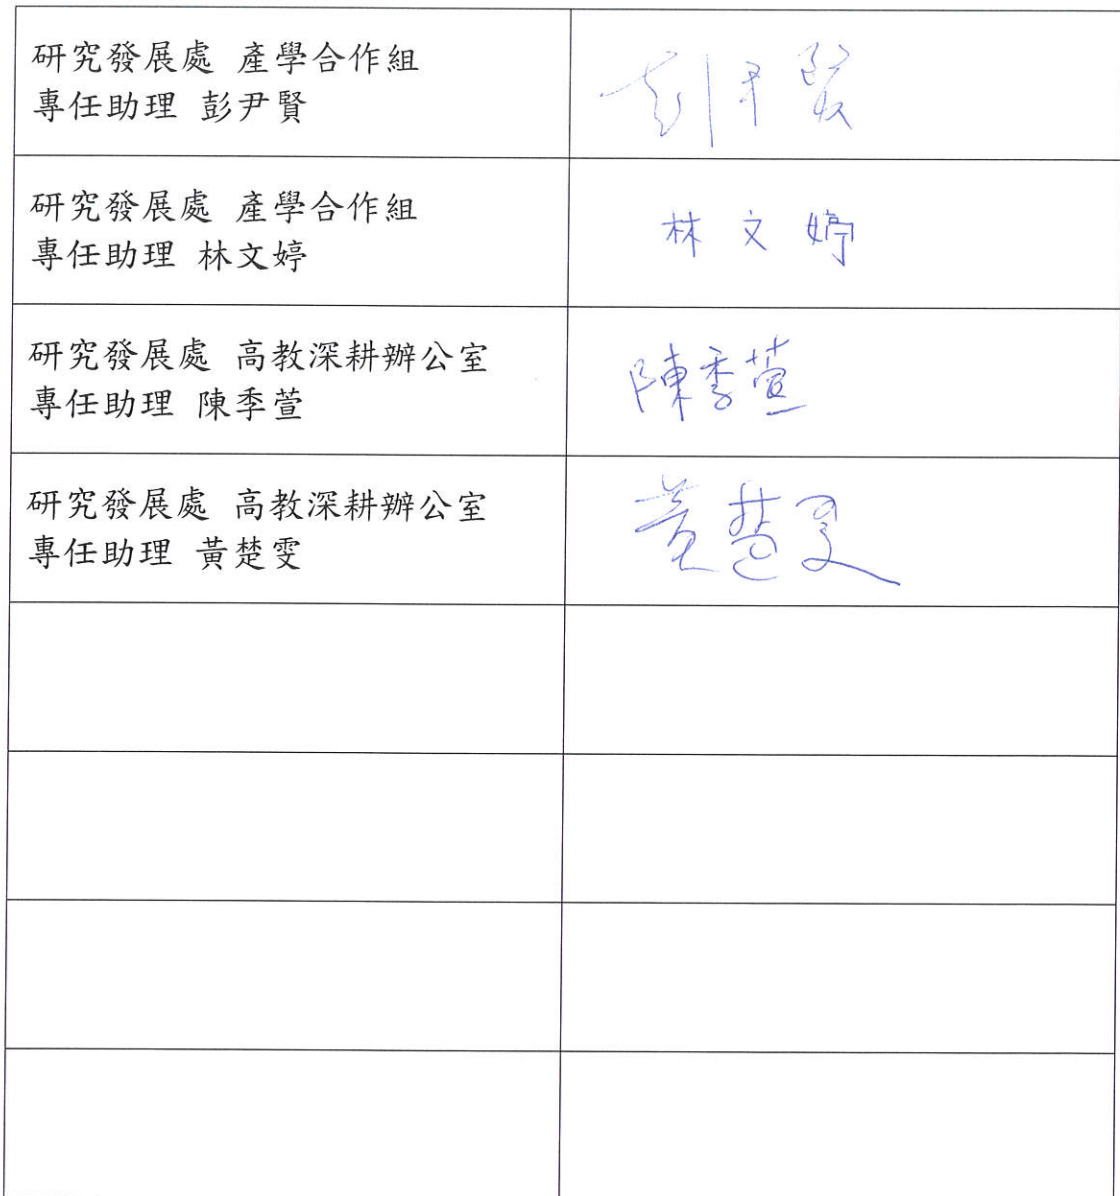 研究發展處 產學合作組
專任助理 彭尹賢
研究發展處 產學合作組
專任助理 林文婷
林文婷
研究發展處 高教深耕辦公室
專任助理 陳季萱
陳季萱
研究發展處 高教深耕辦公室
專任助理 黃楚雯
黃楚雯